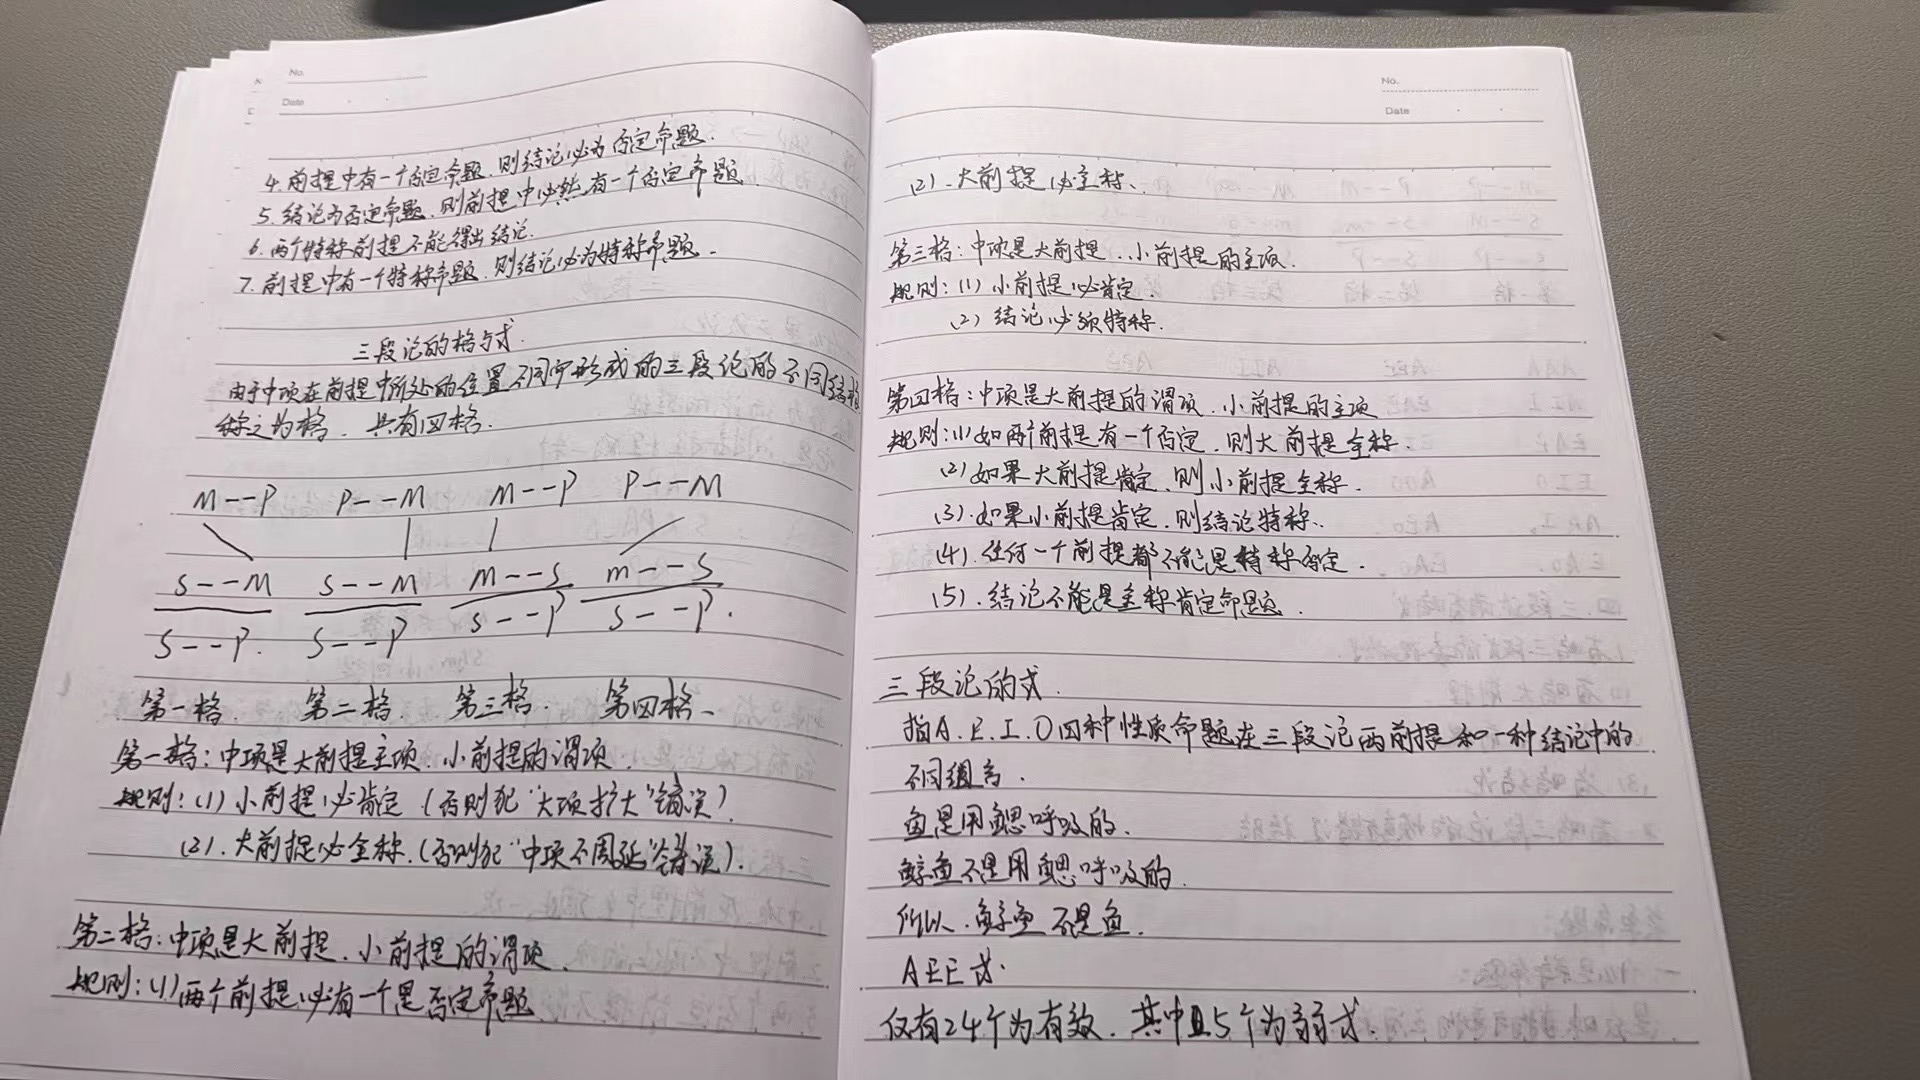 No.
Date
4. 前提中有一个否定命题,则结论必为否定命题.
5. 结论为否定命题,则前提中必然有一个否定命题.
6. 两个特称前提不能得出结论.
7. 前提中有一个特称命题,则结论必为特称命题.
三段论的格与式.
由于中项在前提中所处的位置不同而形成的三段论的不同结构
称之为格、共有四格.
M--P P--M M--P P--M
S--M S--M M--S M--S
S--P. S--P S--P S--P.
第一格. 第二格. 第三格. 第四格.
第一格:中项是大前提主项、小前提的谓项.
规则:(1) 小前提必肯定(否则犯“大项扩大”错误).
(2). 大前提必全称.(否则犯“中项不周延”错误).
第二格:中项是大前提、小前提的谓项.
规则:(1) 两个前提必有一个是否定命题
No.
Date
(2). 大前提必全称.
第三格:中项是大前提、小前提的主项.
规则:(1) 小前提必肯定.
(2) 结论必须特称.
第四格:中项是大前提的谓项、小前提的主项
规则:(1) 如两个前提有一个否定,则大前提全称.
(2) 如果大前提肯定,则小前提全称.
(3). 如果小前提肯定,则结论特称.
(4). 任何一个前提都不能是特称否定.
(5). 结论不能是全称肯定命题.
三段论的式.
指A.E.I.O四种性质命题在三段论两前提和一种结论中的
不同组合.
鱼是用鳃呼吸的.
鲸鱼不是用鳃呼吸的.
所以,鲸鱼不是鱼.
AEE式.
仅有24个为有效.其中且5个为弱式.